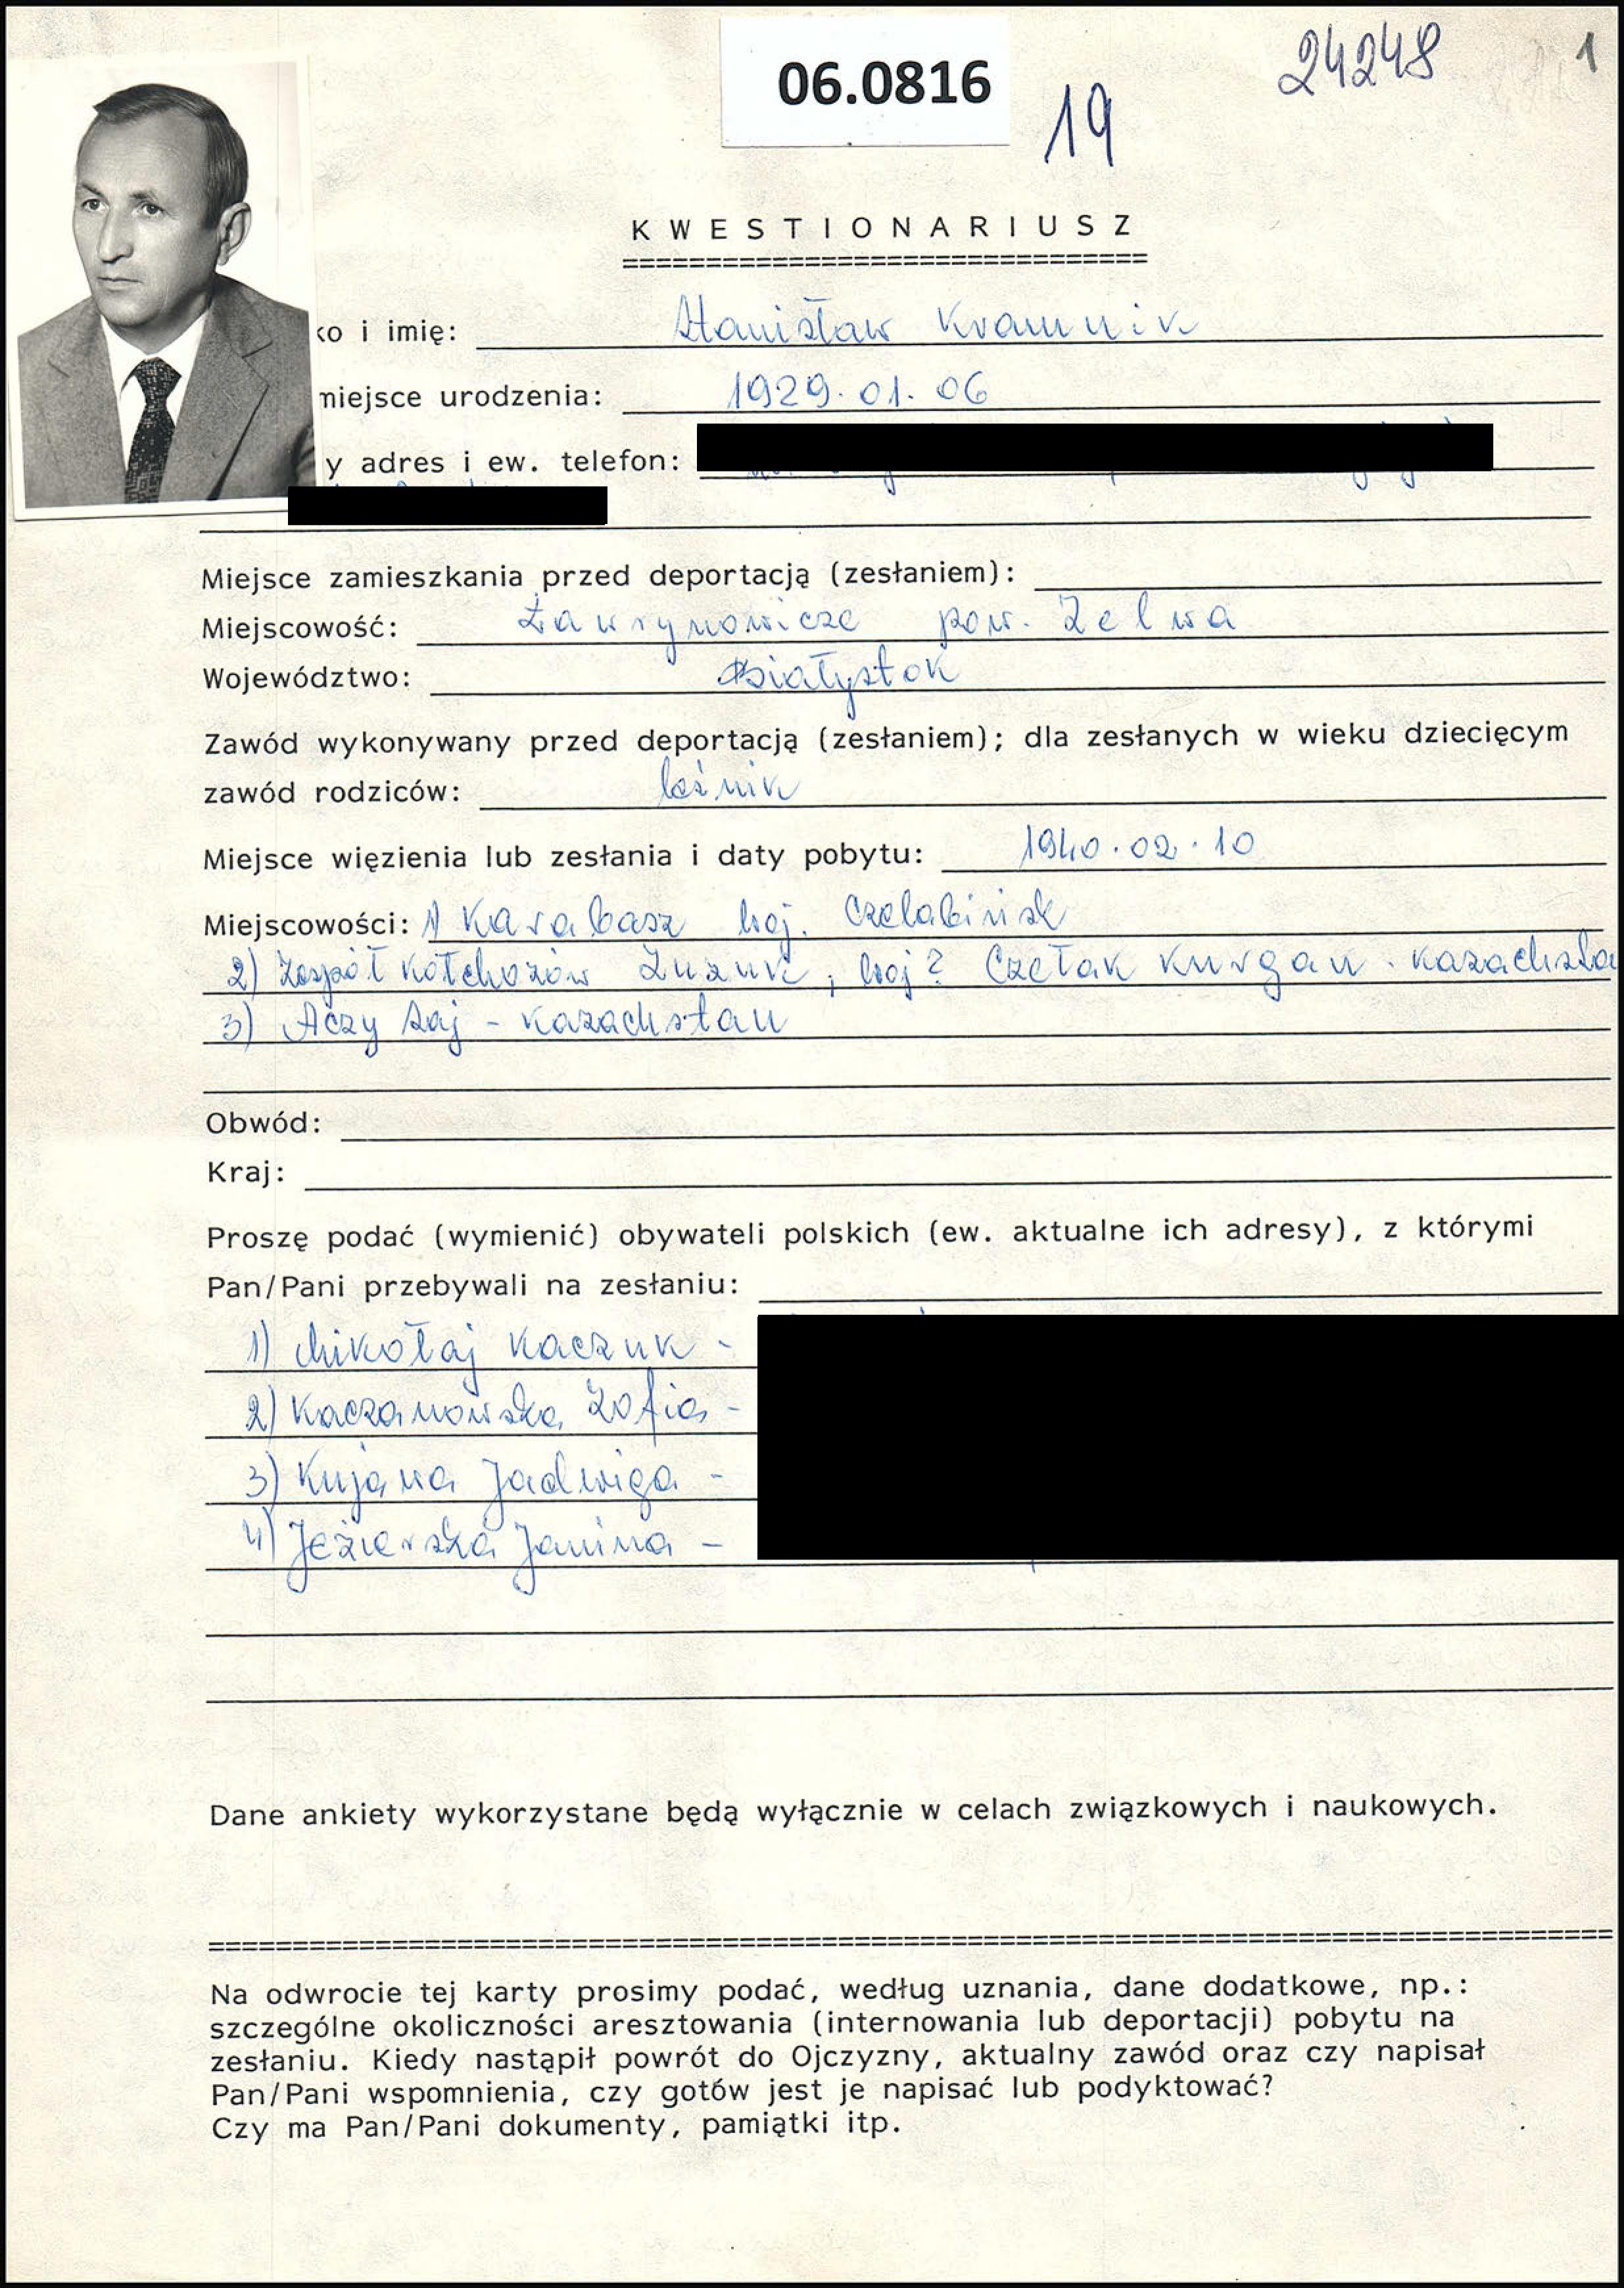 06.0816
19
24248
1
KWESTIONARIUSZ
ko i imię: Stanisław Kramnik
miejsce urodzenia: 1929.01.06
y adres i ew. telefon:
Miejsce zamieszkania przed deportacją (zesłaniem):
Miejscowość: Ławrynowicze pow. Zelwa
Województwo: Białystok
Zawód wykonywany przed deportacją (zesłaniem); dla zesłanych w wieku dziecięcym
zawód rodziców: leśnik
Miejsce więzienia lub zesłania i daty pobytu: 1940.02.10
Miejscowości: 1) Karabasz woj. Czelabińsk
2) Zespół kołchozów ; woj? Czełak Kurgan - Kazachsta
3) Aczy Saj - Kazachstan
Obwód:
Kraj:
Proszę podać (wymienić) obywateli polskich (ew. aktualne ich adresy), z którymi
Pan/Pani przebywali na zesłaniu:
1) Mikołaj Kaczuk -
2) Kaczanowska Zofia -
3) Kujawa Jadwiga -
4) Jezierska Janina -
Dane ankiety wykorzystane będą wyłącznie w celach związkowych i naukowych.
Na odwrocie tej karty prosimy podać, według uznania, dane dodatkowe, np.:
szczególne okoliczności aresztowania (internowania lub deportacji) pobytu na
zesłaniu. Kiedy nastąpił powrót do Ojczyzny, aktualny zawód oraz czy napisał
Pan/Pani wspomnienia, czy gotów jest je napisać lub podyktować?
Czy ma Pan/Pani dokumenty, pamiątki itp.